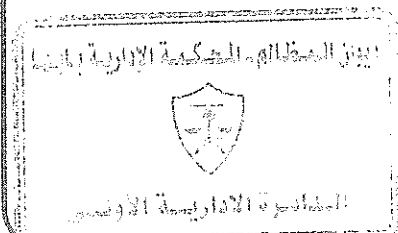 ديوان المظالم - المحكمة الإدارية بأبها
الدائرة الإدارية الأولى